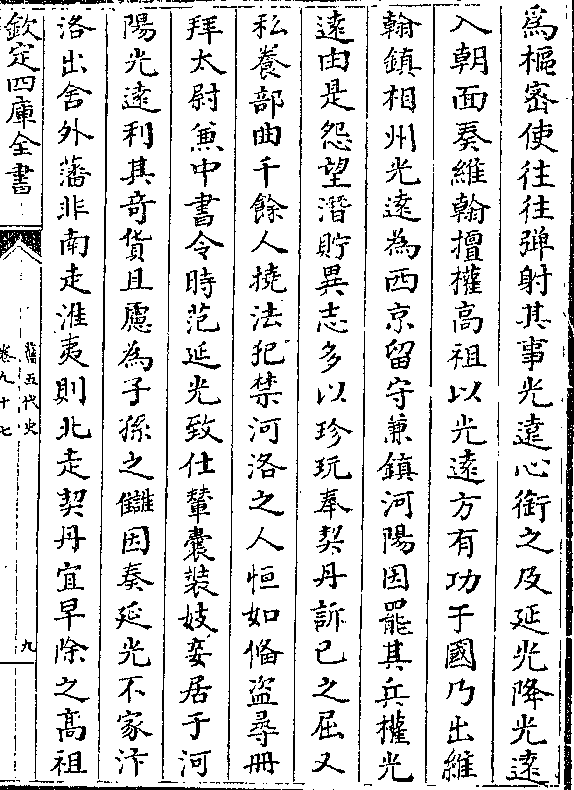 為樞密使往往彈射其事光遠心銜之及延光降光遠
入朝面奏維翰擅權高祖以光遠方有功于國乃出維
翰鎮相州光遠為西京留守兼鎮河陽因罷其兵權光
遠由是怨望潛貯異志多以珍玩奉契丹訴已之屈又
私養部曲千餘人撓法犯禁河洛之人恒如備盜尋冊
拜太尉兼中書令時范延光致仕輦囊裝妓妾居于河
陽光遠利其奇貨且慮為子孫之讎因奏延光不家汴
洛出舍外藩非南走淮夷則北走契丹宜早除之髙祖
欽定四庫全書
舊五代史
卷九十七
九